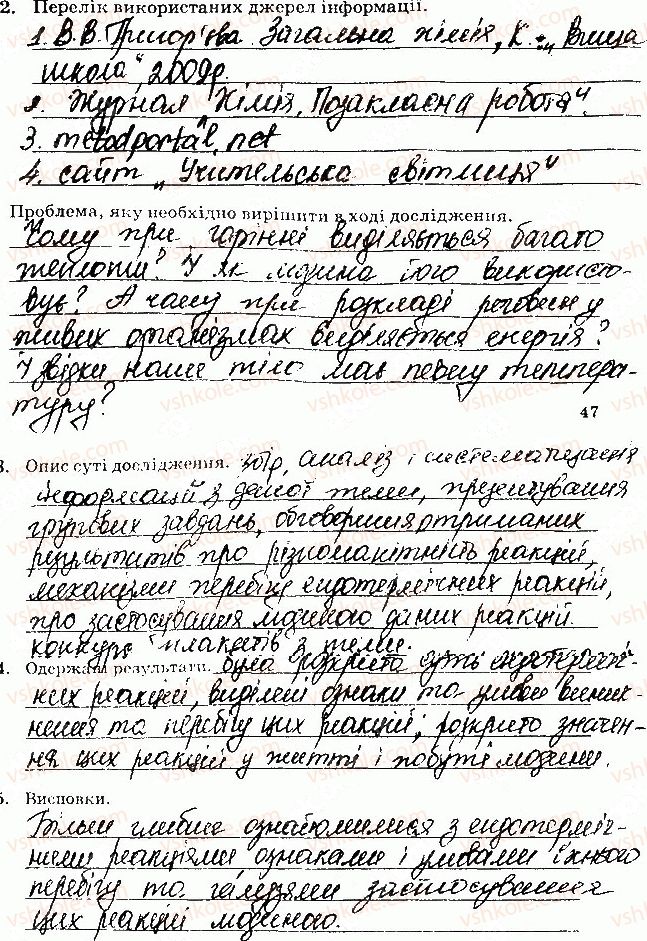 2. Перелік використаних джерел інформації.
1. В.В. Григор'єва Загальна хімія, К.: „Вища
школа", 2009р.
2. Журнал „Хімія, Позакласна робота".
3. metodportal.net
4. сайт „Учительська світлиця"
Проблема, яку необхідно вирішити в ході дослідження.
Чому при горінні виділяється багато
теплоти? У як людина його використо-
вує? А чому при розкладі речовин у
живих організмах виділяється енергія?
І звідки наше тіло має певну темпера-
туру?
47
3. Опис суті дослідження. Збір, аналіз і систематизація
інформації з даної теми, презентування
групових завдань, обговорення отриманих
результатів про різноманітність реакцій,
механізми перебігу ендотермічних реакцій,
про застосування людиною даних реакцій
конкурс плакатів з теми.
4. Одержані результати. Була розкрита суть ендотерміч-
них реакцій, виділені ознаки та умови виник-
нення та перебігу цих реакцій; розкрито значен-
ня цих реакцій у житті і побуті людини.
5. Висновки.
Більш глибше ознайомилися з ендотерміч-
ними реакціями ознаками і умовами їхнього
перебігу та галузями застосування
цих реакцій людиною.